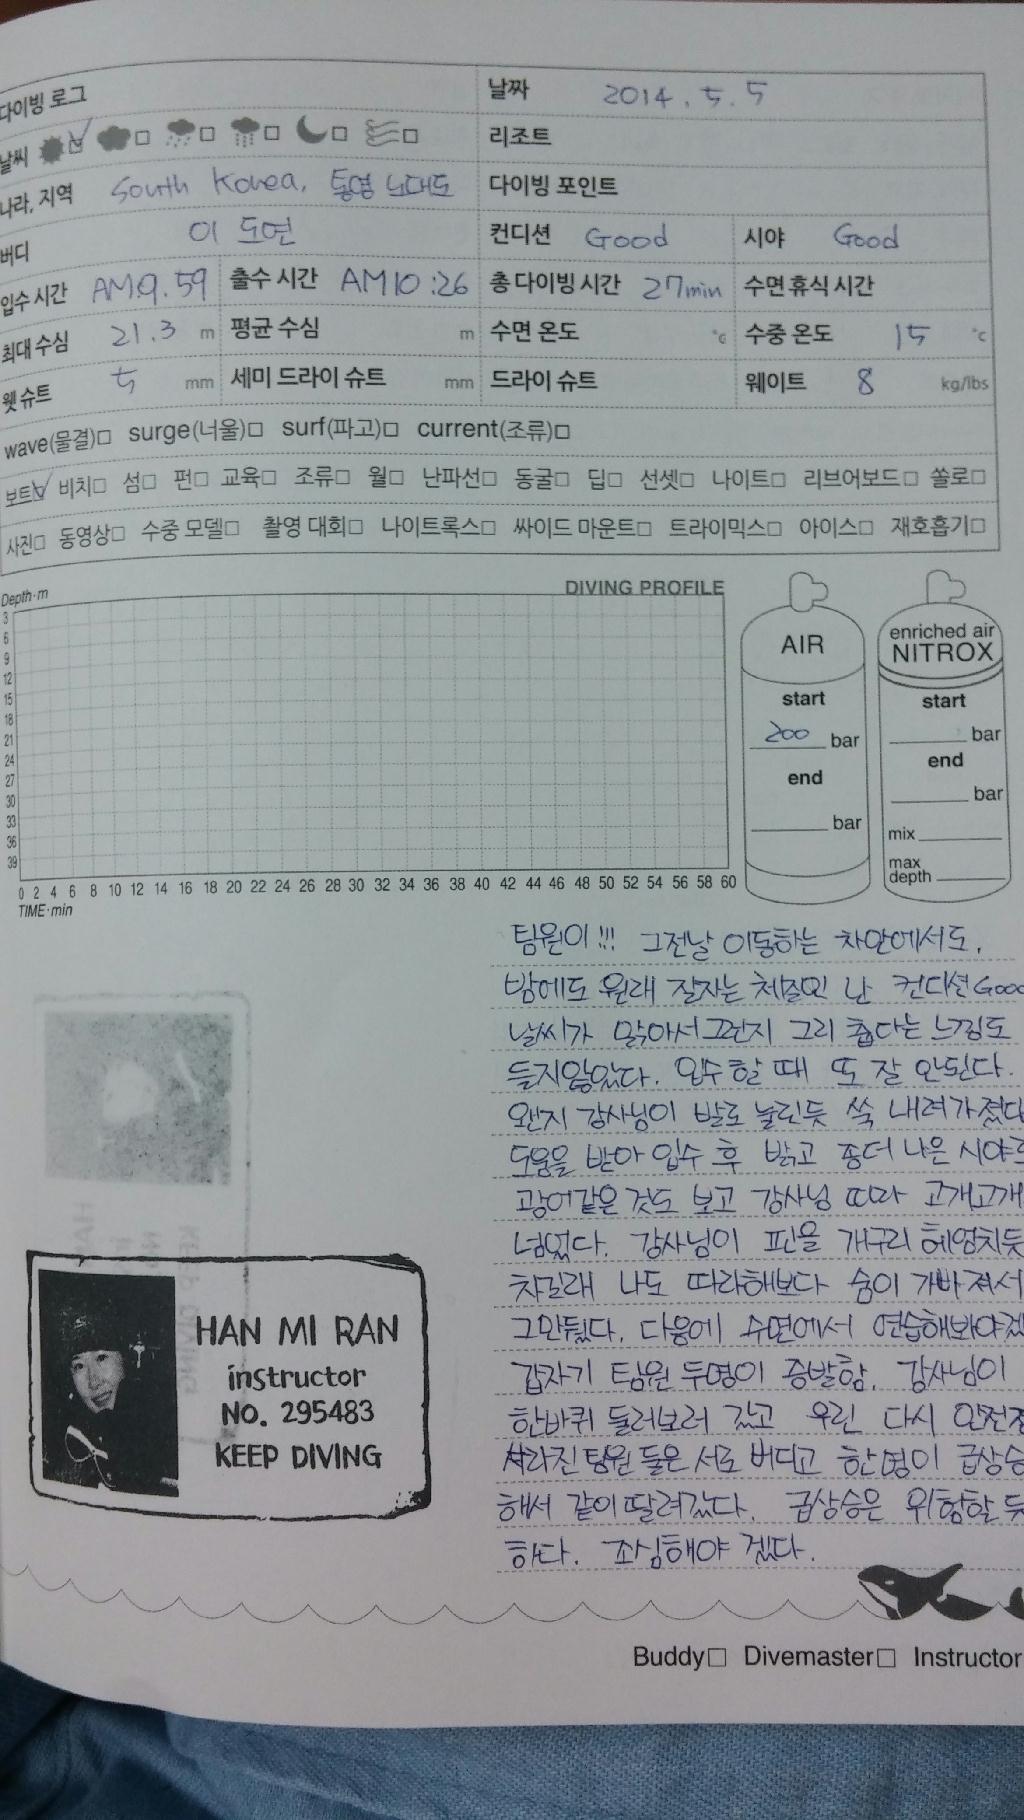 다이빙 로그
날짜 2014. 5. 5
날씨
리조트
나라, 지역 South Korea, 통영 노대도
다이빙 포인트
버디 이 도연
컨디션 Good 시야 Good
입수 시간 AM 9. 59 출수 시간 AM10:26 총 다이빙 시간 27min 수면 휴식 시간
최대 수심 21.3 m 평균 수심 m 수면 온도 °C 수중 온도 15 °C
웻 슈트 5 mm 세미 드라이 슈트 mm 드라이 슈트 웨이트 8 kg/lbs
wave(물결)□ surge(너울)□ surf(파고)□ current(조류)□
보트☑ 비치□ 섬□ 펀□ 교육□ 조류□ 월□ 난파선□ 동굴□ 딥□ 선셋□ 나이트□ 리브어보드□ 쏠로□
사진□ 동영상□ 수중 모델□ 촬영 대회□ 나이트록스□ 싸이드 마운트□ 트라이믹스□ 아이스□ 재호흡기□
Depth·m
DIVING PROFILE
3
6
9
12
15
18
21
24
27
30
33
36
39
0 2 4 6 8 10 12 14 16 18 20 22 24 26 28 30 32 34 36 38 40 42 44 46 48 50 52 54 56 58 60
TIME·min
AIR
start
200 bar
end
bar
enriched air
NITROX
start
bar
end
bar
mix
max
depth
팀원이!!! 그전날 이동하는 차안에서도,
밤에도 원래 잘자는 체질인 난 컨디션 Good
날씨가 맑아서그런지 그리 춥다는 느낌도
들지않았다. 입수할 때 또 잘 안된다.
왠지 강사님이 발로 눌린듯 쑥 내려가졌다
도움을 받아 입수 후 밝고 좀더 나은 시야로
광어같은 것도 보고 강사님 따라 고개고개
넘었다. 강사님이 핀을 개구리 헤엄치듯
차길래 나도 따라해보다 숨이 가빠져서
그만뒀다. 다음에 수면에서 연습해봐야겠
갑자기 팀원 두명이 증발함. 강사님이
한바퀴 둘러보러 갔고 우린 다시 안전정
사라진 팀원 둘은 서로 버디고 한명이 급상승
해서 같이 딸려갔다. 급상승은 위험할 듯
하다. 조심해야 겠다.
HAN MI RAN
instructor
NO. 295483
KEEP DIVING
Buddy□ Divemaster□ Instructor